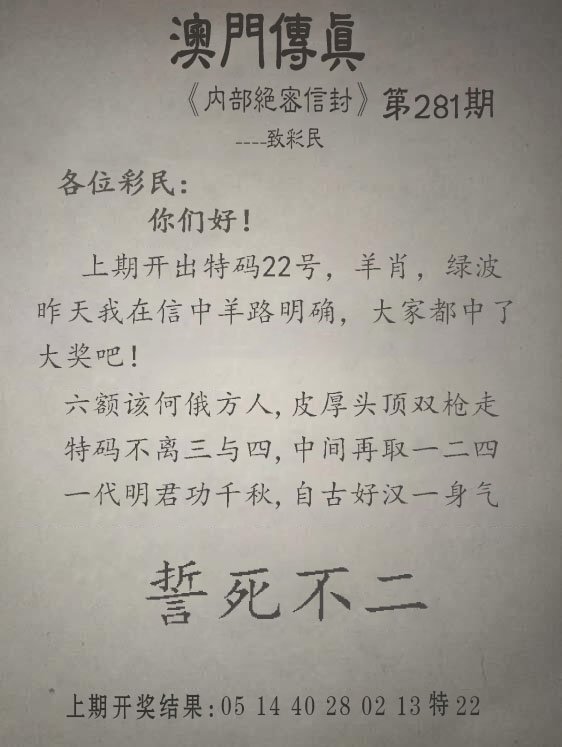 澳門傳眞
《内部絕密信封》第281期
----致彩民
各位彩民：
你们好！
上期开出特码22号，羊肖，绿波
昨天我在信中羊路明确，大家都中了
大奖吧！
六额该何俄方人,皮厚头顶双枪走
特码不离三与四,中间再取一二四
一代明君功千秋,自古好汉一身气
誓死不二
上期开奖结果:05 14 40 28 02 13特22